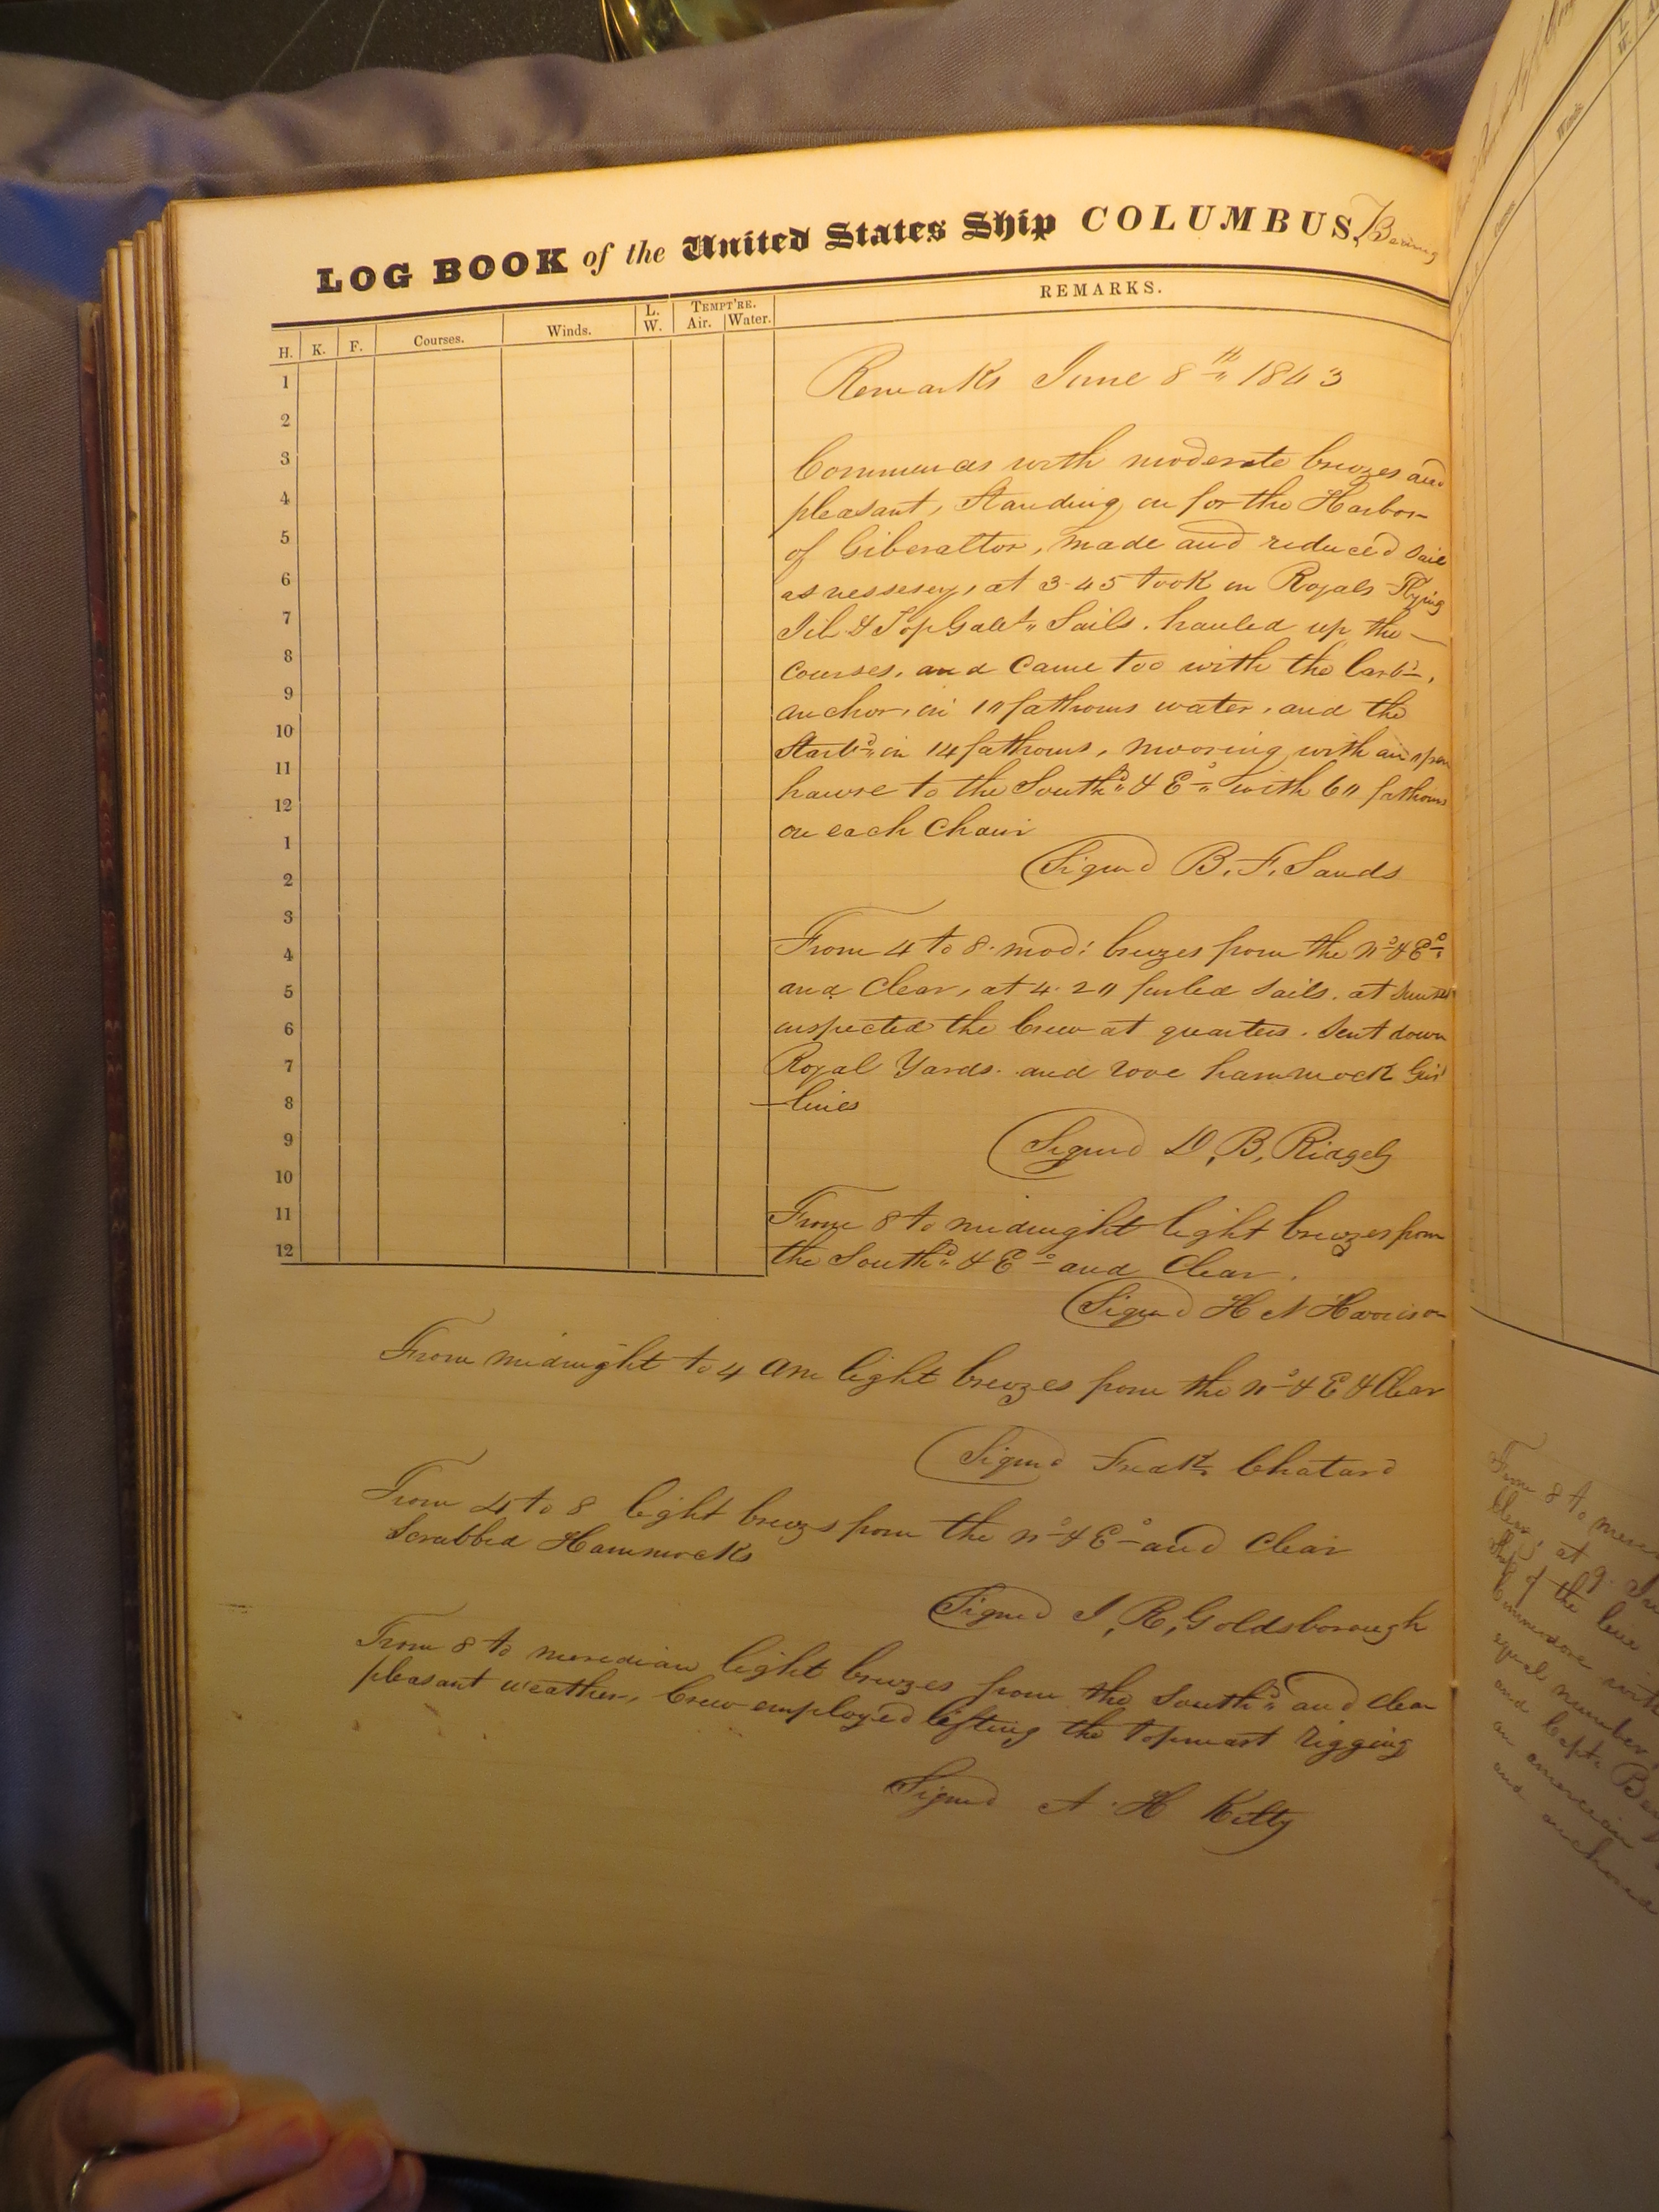 LOG BOOK of the United States Ship COLUMBUS, Bearing
H. K. F. Courses. Winds. L. W. TEMPT'RE. Air. Water. REMARKS.
1
2
3
4
5
6
7
8
9
10
11
12
1
2
3
4
5
6
7
8
9
10
11
12
Remarks June 8th 1843
Commences with moderate breezes and
pleasant, Standing on for the Harbor
of Giberaltor, made and reduced sail
as nessesery, at 3.45 took in Royals Flying
Jib & Top Gallt Sails. hauled up the
courses, and came too with the Larbd,
anchor, in 10 fathoms water, and the
Starbd in 14 fathoms, mooring with an open
hawse to the Southd & Ed with 60 fathoms
on each Chain
Signed B. F. Sands
From 4 to 8. mod: breezes from the Nd & Ed
and Clear, at 4.20 furled sails. at Sunset
inspected the Crew at quarters. Sent down
Royal Yards. and rove hammock Girt
lines
Signed D, B, Ridgely
From 8 to midnight light breezes from
the Southd & Ed and Clear.
Signed H N Harrison
From midnight to 4 am light breezes from the Nd & E & Clear
Signed Fredk Chatard
From 4 to 8 light breezs from the Nd & Ed and Clear
Scrubbed Hammocks
Signed J, R, Goldsborough
From 8 to meredian light breezes from the Southd and clear
pleasant weather, Crew employed lifting the topmast rigging
Signed A. H Kilty
Winds
From 8 to
Clear, at 9.
Ship of the line
Commodore
equal number
and Capt.
an american
and anchored